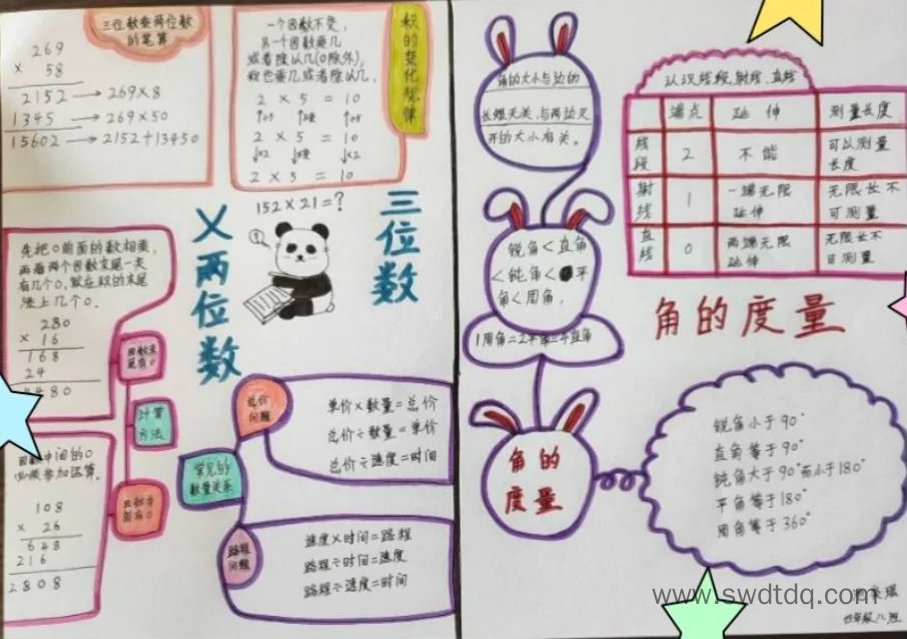 三位数乘两位数
的笔算
269
× 58
2152 → 269×8
1345 → 269×50
15602 → 2152+13450
积的变化规律
一个因数不变,
另一个因数乘几
或者除以几(0除外),
积也乘几或者除以几,
2 × 5 = 10
2 × 5 = 10
2 × 5 = 10
152×21=?
三位数
乂两位数
先把0前面的数相乘,
两看两个因数末尾一共
有几个0,就在积的末尾
添上几个0.
280
× 16
168
24
4480
因数末
尾有0
计算
方法
因数中
间有0
因数中间的0
必须参加运算。
108
× 26
648
216
2808
常见的
数量关系
总价
问题
单价×数量=总价
总价÷数量=单价
总价÷速度=时间
路程
问题
速度×时间=路程
路程÷时间=速度
路程÷速度=时间
角的大小与边的
长短无关,与两边叉
开的大小有关。
锐角<直角
<钝角<平
角<周角,
1周角=2平角=4直角
角的
度量
认识线段,射线,直线
端点 延伸 测量长度
线段 2 不能 可以测量
长度
射线 1 一端无限
延伸 无限长不
可测量
直线 0 两端无限
延伸 无限长不
日测量
角的度量
锐角小于90°
直角等于90°
钝角大于90°而小于180°
平角等于180°
周角等于360°
www.swdtdq.com
四年级八班